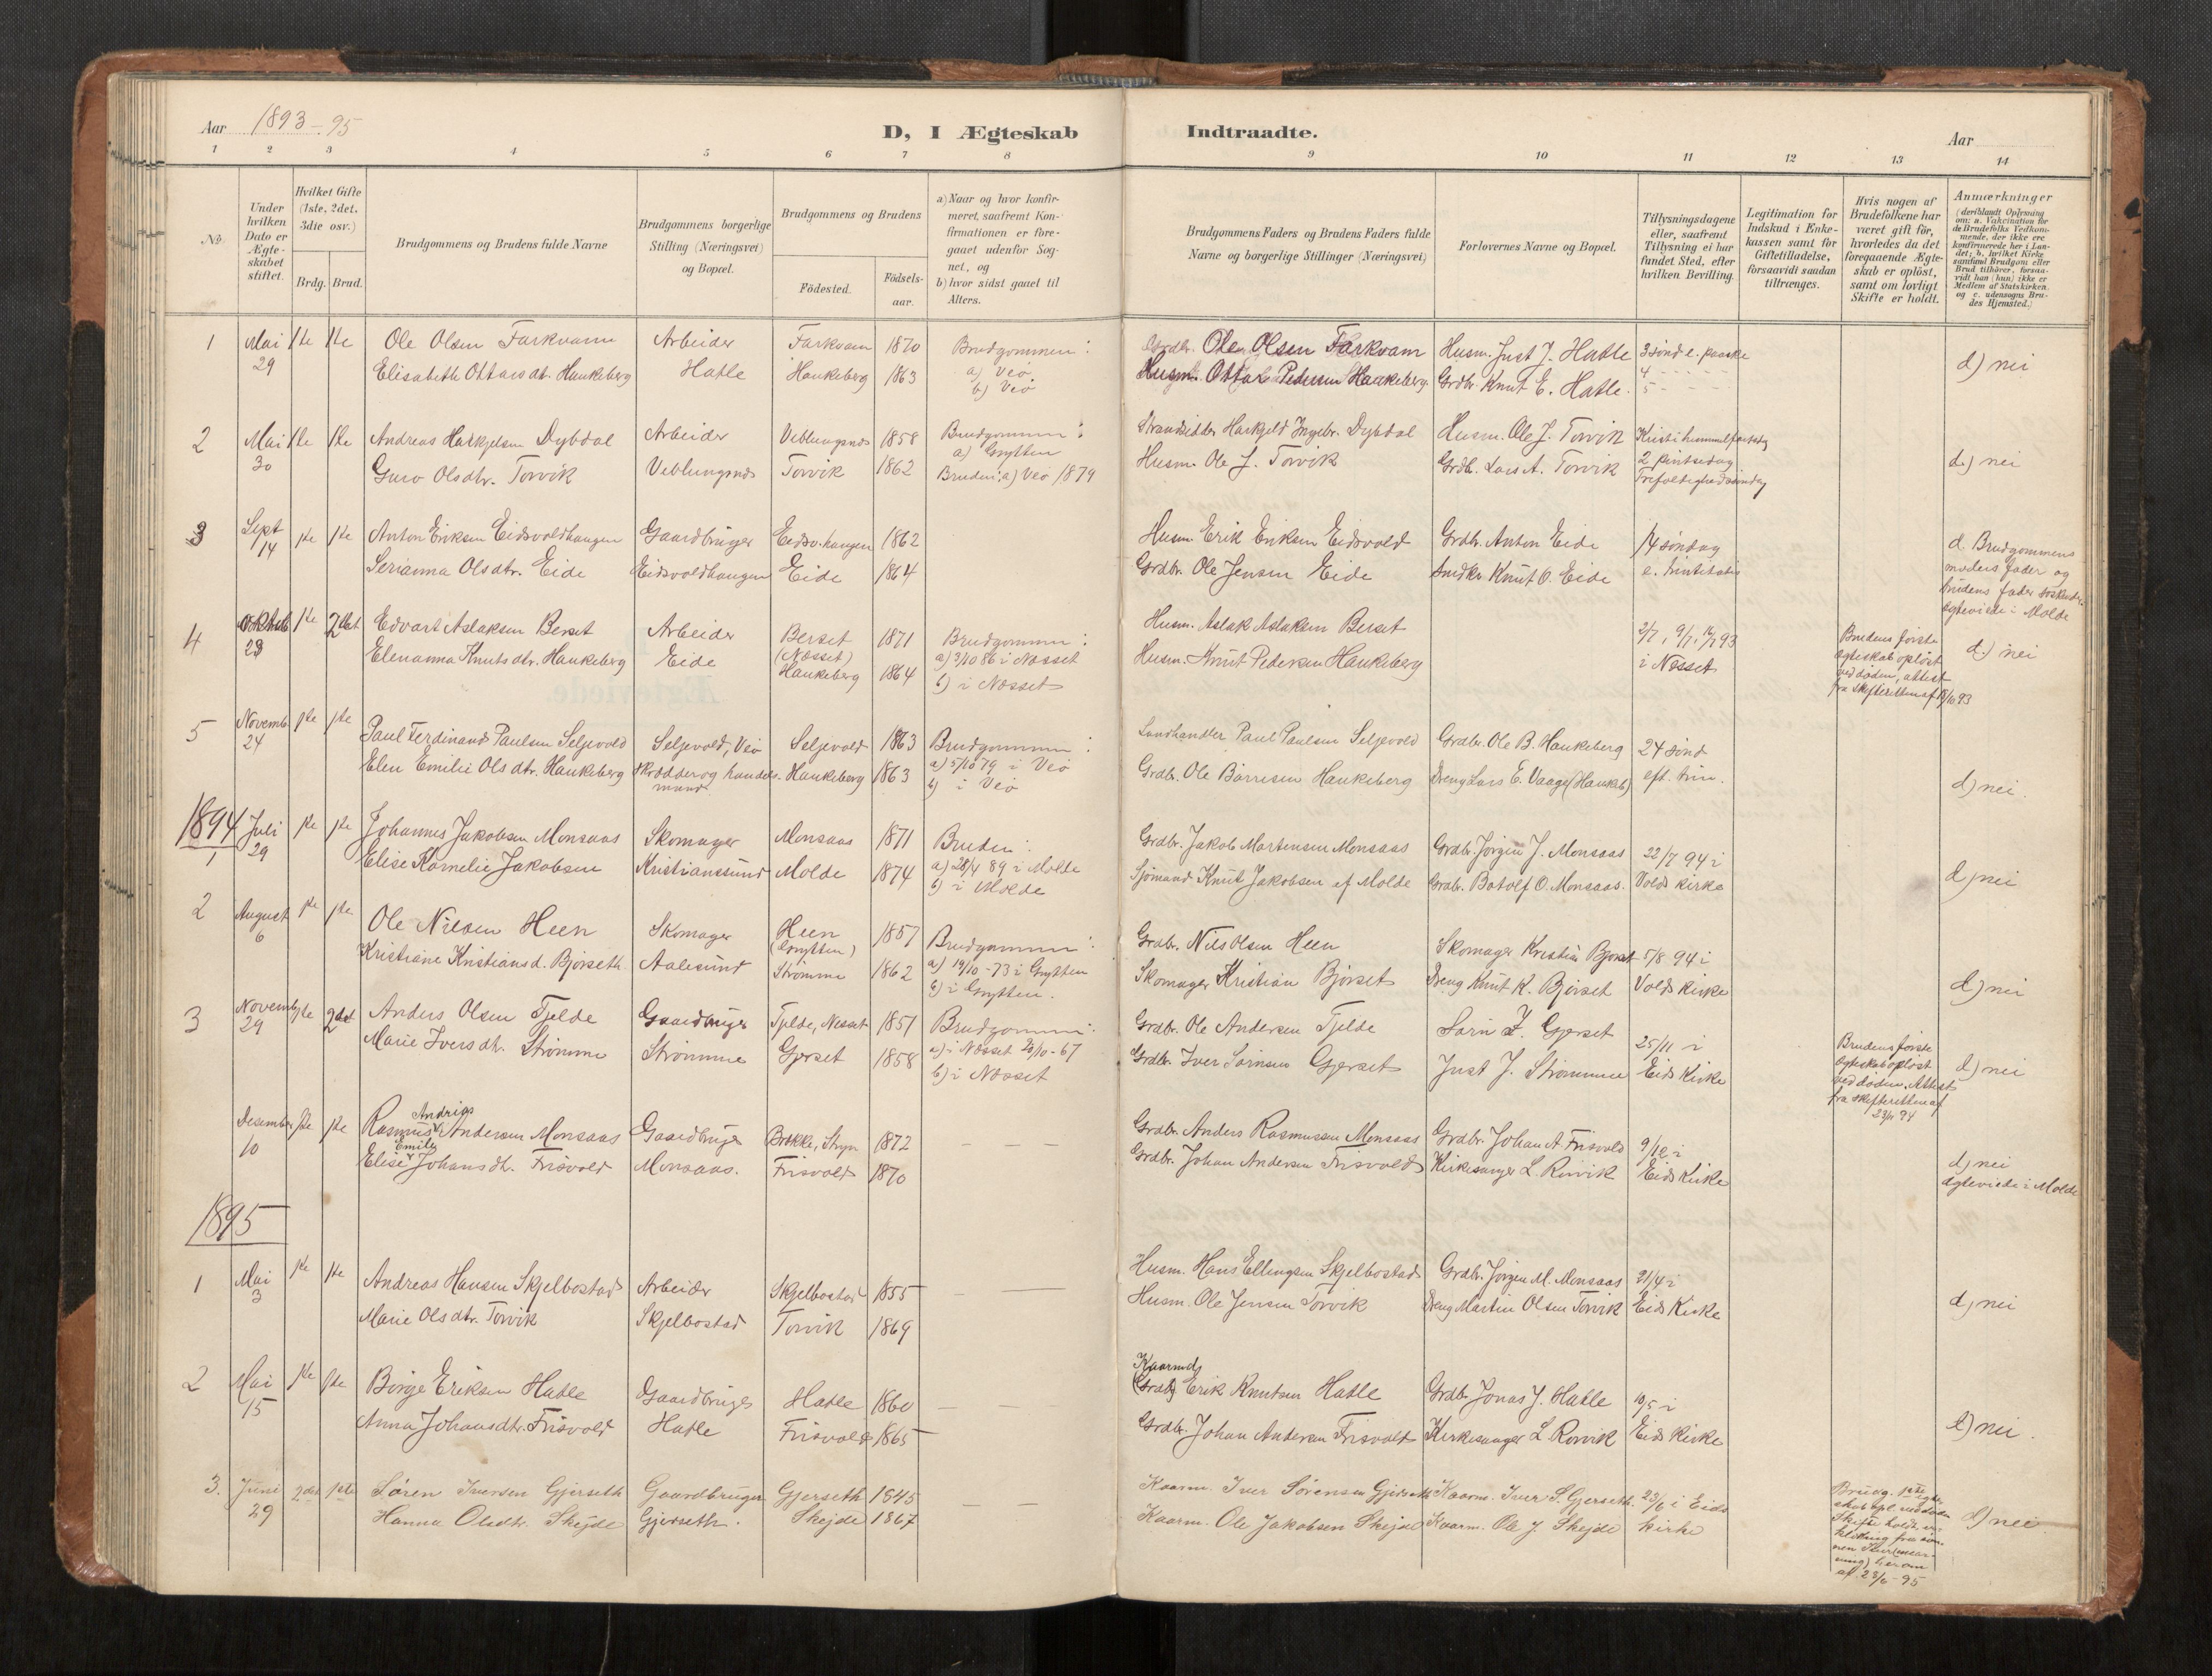 Aar 1893-95
D, I Ægteskab
Indtraadte.
Aar
1 2 3 4 5 6 7 8 9 10 11 12 13 14
No.
Under hvilken Dato er Ægteskabet stiftet.
Hvilket Gifte (1ste, 2det, 3die osv.)
Brdg. Brud.
Brudgommens og Brudens fulde Navne
Brudgommens borgerlige Stilling (Næringsvei) og Bopæl.
Brudgommens og Brudens
Fødested.
Fødselsaar.
a) Naar og hvor konfirmeret, saafremt Konfirmationen er foregaaet udenfor Sognet, og
b) hvor sidst gaaet til Alters.
Brudgommens Faders og Brudens Faders fulde Navne og borgerlige Stillinger (Næringsvei)
Forlovernes Navne og Bopæl.
Tillysningsdagene eller, saafremt Tillysning ei har fundet Sted, efter hvilken Bevilling.
Legitimation for Indskud i Enkekassen samt for Giftetilladelse, forsaavidt saadan tiltrænges.
Hvis nogen af Brudefolkene har været gift før, hvorledes da det foregaaende Ægteskab er opløst, samt om lovligt Skifte er holdt.
Anmærkninger
(deriblandt Oplysning om: a. Vakcination for de Brudefolks Vedkommende, der ikke ere konfirmerede her i Landet; b. hvilket Kirkesamfund Brudgom eller Brud tilhører, forsaavidt han (hun) ikke er Medlem af Statskirken og c. udensogns Brudes Hjemsted.)
1 Mai 1ste 1ste Ole Olsen Farkvam Arbeider Farkvam 1870 Brudgommen: Grdbr. Ole Olsen Farkvam Husm. Just J. Hatle 3 sønd e. paaske
29 Elisabeth Ottarsdt. Haukeberg Hatle Haukeberg 1863 a) Veø Husm. Ottar Pedersen Haukeberg Grdbr. Knut E. Hatle. 4 - - - d) nei
b) Veø 5 - - -
2 Mai 1ste 1ste Andreas Haukjelsen Dybdal Arbeider Veblungsnes 1858 Brudgommen: Strandsidder Haukjeld Ingebr. Dybdal Husm. Ole J. Torvik Kristi himmelfartsdag
a) Grytten
30 Guro Olsdtr. Torvik Veblungsnes Torvik 1862 Bruden: a) Veø 1879 Husm. Ole J. Torvik Grdb. Lars A. Torvik 2 pintsedag d.) nei
Trefoltighedssøndag
3 Sept 1ste 1ste Anton Eriksen Eidsvoldhaugen Gaardbruger Eidsv.haugen 1862 Husm. Erik Eriksen Eidsvold Grdbr. Anton Eide 14 søndag d. Brudgommens
14 Serianna Olsdtr. Eide Eidsvoldhaugen Eide 1864 Grdbr. Ole Jensen Eide Smdkr. Knut O. Eide e. trinitatis moders fader og
brudens fader søskende.
Ægteviede i Molde
4 Oktob 1ste 2det Edvart Aslaksen Berset Arbeider Berset 1871 Brudgommen: Husm. Aslak Aslaksen Berset 2/7, 9/7, 16/7 93 Brudens første
23 Elenanna Knutsdtr. Haukeberg Eide (Næsset) a) 3/10 86 i Næsset Husm. Knut Pedersen Haukeberg i Næsset ægteskab opløst d.) nei
Haukeberg 1864 b) i Næsset ved døden, attest
fra skifteretten af 18/10 93
5 Novemb 1ste 1ste Paul Ferdinand Paulsen Seljevold Seljevold, Veø Seljevold 1863 Brudgommen: Landhandler Paul Paulsen Seljevold Grdbr. Ole B. Haukeberg 24 sønd
24 Elen Emilie Olsdtr. Haukeberg skrædder og handelsmand Haukeberg 1863 a) 5/10 79 i Veø Grdbr. Ole Børresen Haukeberg Dreng Lars E. Vaage (Haukeb) eft. trin. d) nei.
b) i Veø
1894
1 Juli 1ste 1ste Johannes Jakobsen Monsaas Skomager Monsaas 1871 Bruden: Grdbr. Jakob Martensen Monsaas Grdbr. Jørgen J. Monsaas 22/7 94 i
29 Elise Kornelie Jakobsen Kristianssund Molde 1874 a) 28/4 89 i Molde Sjømand Knut Jakobsen af Molde Grdbr. Botolf O. Monsaas. Volds kirke d) nei
b) i Molde
2 August 1ste 1ste Ole Nilsen Heen Skomager Heen 1857 Brudgommen: Grdbr. Nils Olsen Heen Skomager Kristian Bjørset 5/8 94 i
(Grytten)
6 Kristiane Kristiansd. Bjørseth Aalesund Strømme 1862 a) 19/10-73 i Grytten Skomager Kristian Bjørset Dreng Knut K. Bjørset Volds kirke d) nei
b) i Grytten.
3 Novemb 1ste 2det Anders Olsen Tjelde Gaardbruger Tjelde, Nesset 1851 Brudgommen: Grdbr. Ole Andersen Tjelde Sørn I. Gjerset 25/11 i Brudens første
29 Marie Iversdt. Strømme Strømme Gjerset 1858 a) i Næsset 20/10-67 Grdbr. Iver Sørnsen Gjerset Just J. Strømme Eids Kirke Ægteskab opløst d) nei
b) i Næsset ved døden, Attest
fra skifteretten af
23/11 94
Desember 1ste 1ste Rasmus Andrias Andersen Monsaas Gaardbruger Brække, Stryn 1872 — — — Grdbr. Anders Rasmussen Monsaas Grdbr. Johan A. Frisvold 9/12 i
10 Elise Emily Johansdt. Frisvold Monsaas. Frisvold 1870 Grdbr. Johan Andersen Frisvold Kirkesanger L. Rørvik Eids Kirke d) nei
Ægteviede i Molde
1895
1 Mai 1ste 1ste Andreas Hansen Skjelbostad Arbeider Skjelbostad 1855 — — Husm. Hans Ellingsen Skjelbostad Grdbr. Jørgen M. Monsaas 21/4 i
3 Marie Olsdtr. Torvik Skjelbostad Torvik 1869 Husm. Ole Jensen Torvik Dreng Martin Olsen Torvik Eids Kirke d) nei
2 Mai 1ste 1ste Børge Eriksen Hatle Gaardbruger Hatle 1860 — — — Kaarmd. (Grdb.) Erik Knutsen Hatle Grdbr. Jonas J. Hatle 10/5 i
15 Anna Johansdtr. Frisvold Hatle Frisvold 1865 Grdbr. Johan Andersen Frisvold Kirkesanger L. Rørvik Eids Kirke d) nei.
3. Juni 2det 1ste Søren Iversen Gjerseth Gaardbruger Gjerseth 1845 — — Kaarm. Iver Sørensen Gjerseth Kaarm. Iver S. Gjerseth. 23/6 i Eids Brudg. 1ste egte-
29 Hanna Olsdtr. Skejde Gjerseth. Skejde 1867 Kaarm. Ole Jakobsen Skejde Kaarm. Ole J. Skejde kirke skab opl. ved døden d) nei
Skifte holdt, er-
klæring fra
herom
af 23/6-95